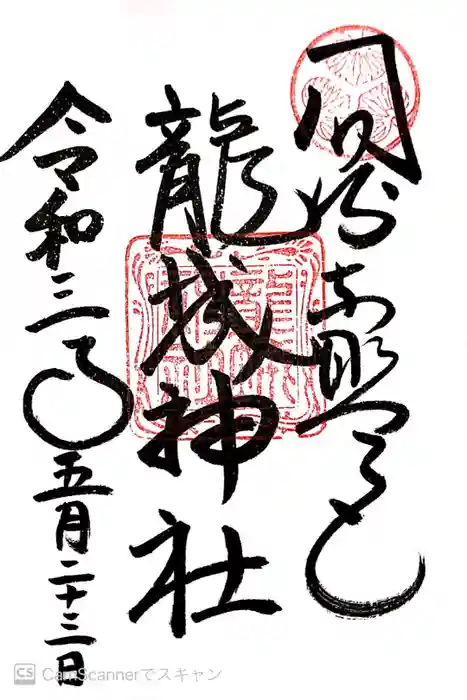 岡崎東照宮
龍城神社
令和三年五月二十三日
CS CamScannerでスキャン